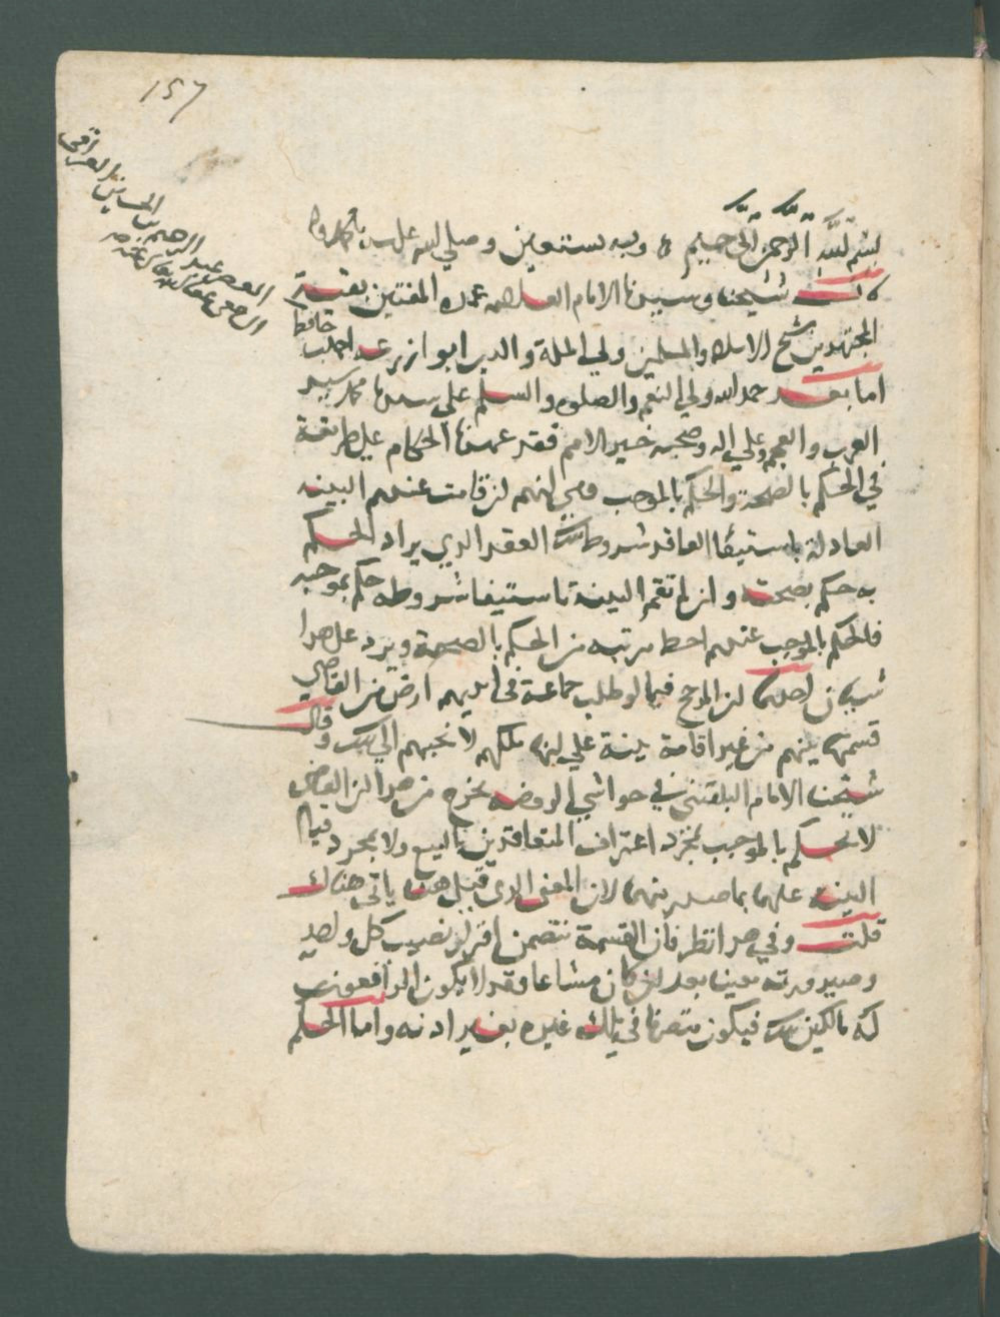 ١٥٧
بسم الله الرحمن الرحيم وبه نستعين وصلى الله على سيدنا محمد واله
قال شيخنا وسيدنا الامام العلامه عمدة المفتين بقية
المجتهدين شيخ الاسلام والمسلمين ولي الملة والدين ابو زرعه احمد
حافظ
اما بعد حمد الله ولي النعم والصلوة والسلم على سيدنا محمد سيد
العرب والعجم وعلى اله وصحبه خير الامم فقد عهدنا الحكام على طريقة
في الحكم بالصحة والحكم بالموجب وهي انهم ان قامت عندهم البينه
العادلة باستيفا العاقد شروط العقد الذي يراد الحكم
به حكم بصحته وان لم تقم البينة باستيفا شروطه حكم بموجبه
فالحكم بالموجب عندهم احط مرتبه من الحكم بالصحة ويرد على هذا
شيان احدهما ان المرجح فيما لو طلب جماعة في ايديهم ارض من القاضي
قسمتها بينهم من غير اقامة بينة على انها ملكهم لا يجيبهم الى ذلك وقال
شيخنا الامام البلقيني في حواشي الروضه يخرج من هذا ان القاضي
لا يحكم بالموجب بمجرد اعتراف المتعاقدين بالبيع ولا بمجرد قيام
البينه عليهما بما صدر بينهما لان المعنى الذي قيل هنا ياتي هناك
قلت وفي هذا نظر فان القسمة تتضمن افراز نصيب كل واحد
وصيرورته معينا بعد ان كان مشاعا وقد لا يكون الرافعون
له مالكين فيكون متصرفا في ملك غيره بغير اذنه واما الحكم
عبد الرحيم بن الحسين العراقي